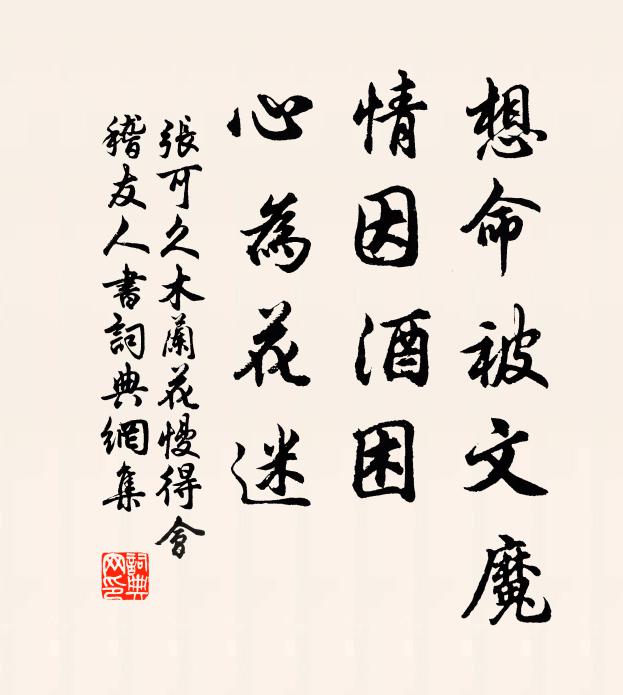 想命被文魔
情因酒困
心為花迷
張可久木蘭花慢得會
稽友人書詞典網集
詞典
网印